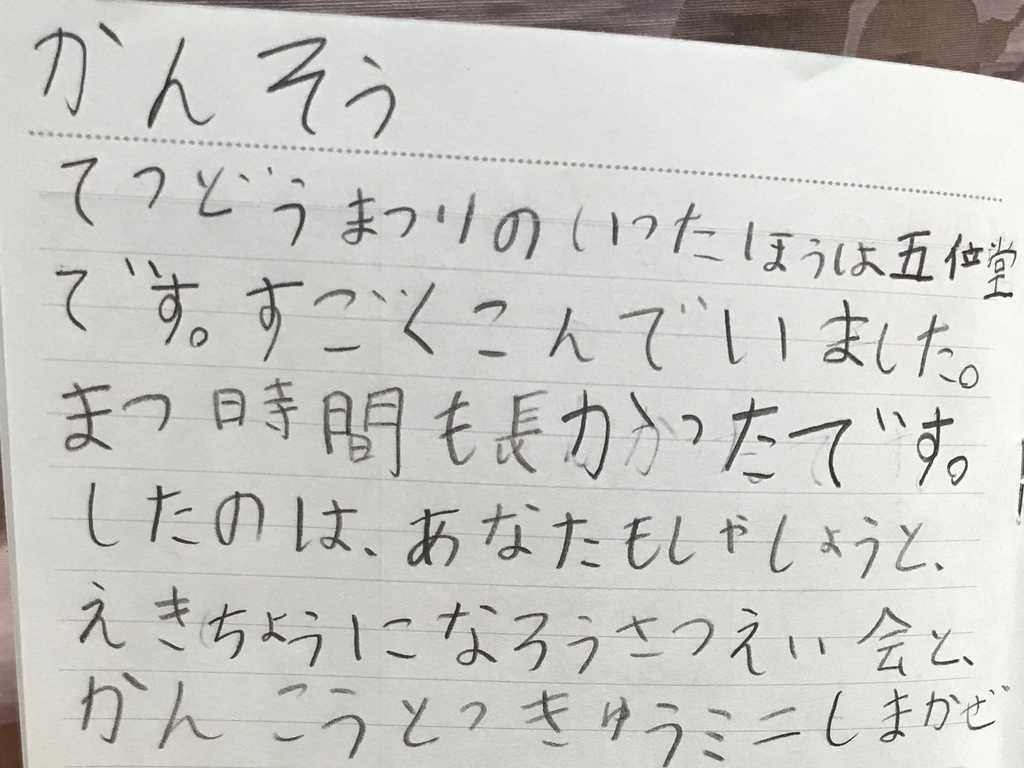 かんそう
てつどうまつりのいったほうは五位堂
です。すごくこんでいました。
まつ時間も長かかったてです。
したのは、あなたもしゃしょうと、
えきちょうになろうさつえい会と、
かんこうとっきゅうミニしまかぜ